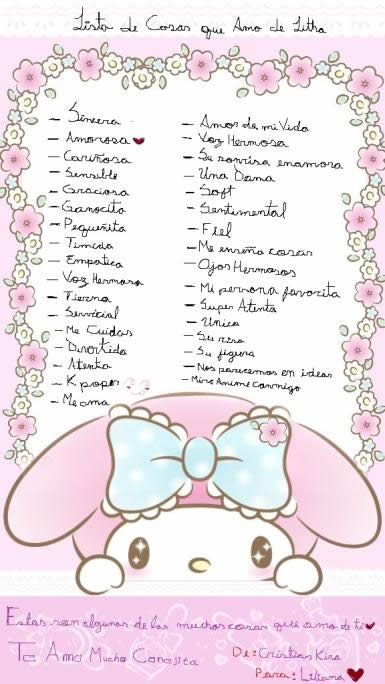 Lista de Cosas que Amo de Litha
- Sincera
- Amorosa
- Cariñosa
- Sensible
- Graciosa
- Ganocita
- Pequeñita
- Timida
- Empatica
- Voz Hermosa
- Tierna
- Servicial
- Me Cuidas
- Divertida
- Atenta
- K poper
- Me ama
- Amor de mi Vida
- Voz Hermosa
- Su sonrisa enamora
- Una Dama
- Soft
- Sentimental
- Fiel
- Me enseña cosas
- Ojos Hermosos
- Mi persona favorita
- Super Atenta
- Unica
- Su
- Su figura
- Nos parecemos en ideas
- Mira Anime Conmigo
Estas son algunas de las muchas cosas que amo de ti
Te Amo Mucho
De: Cristian Kira
Para: Liliana